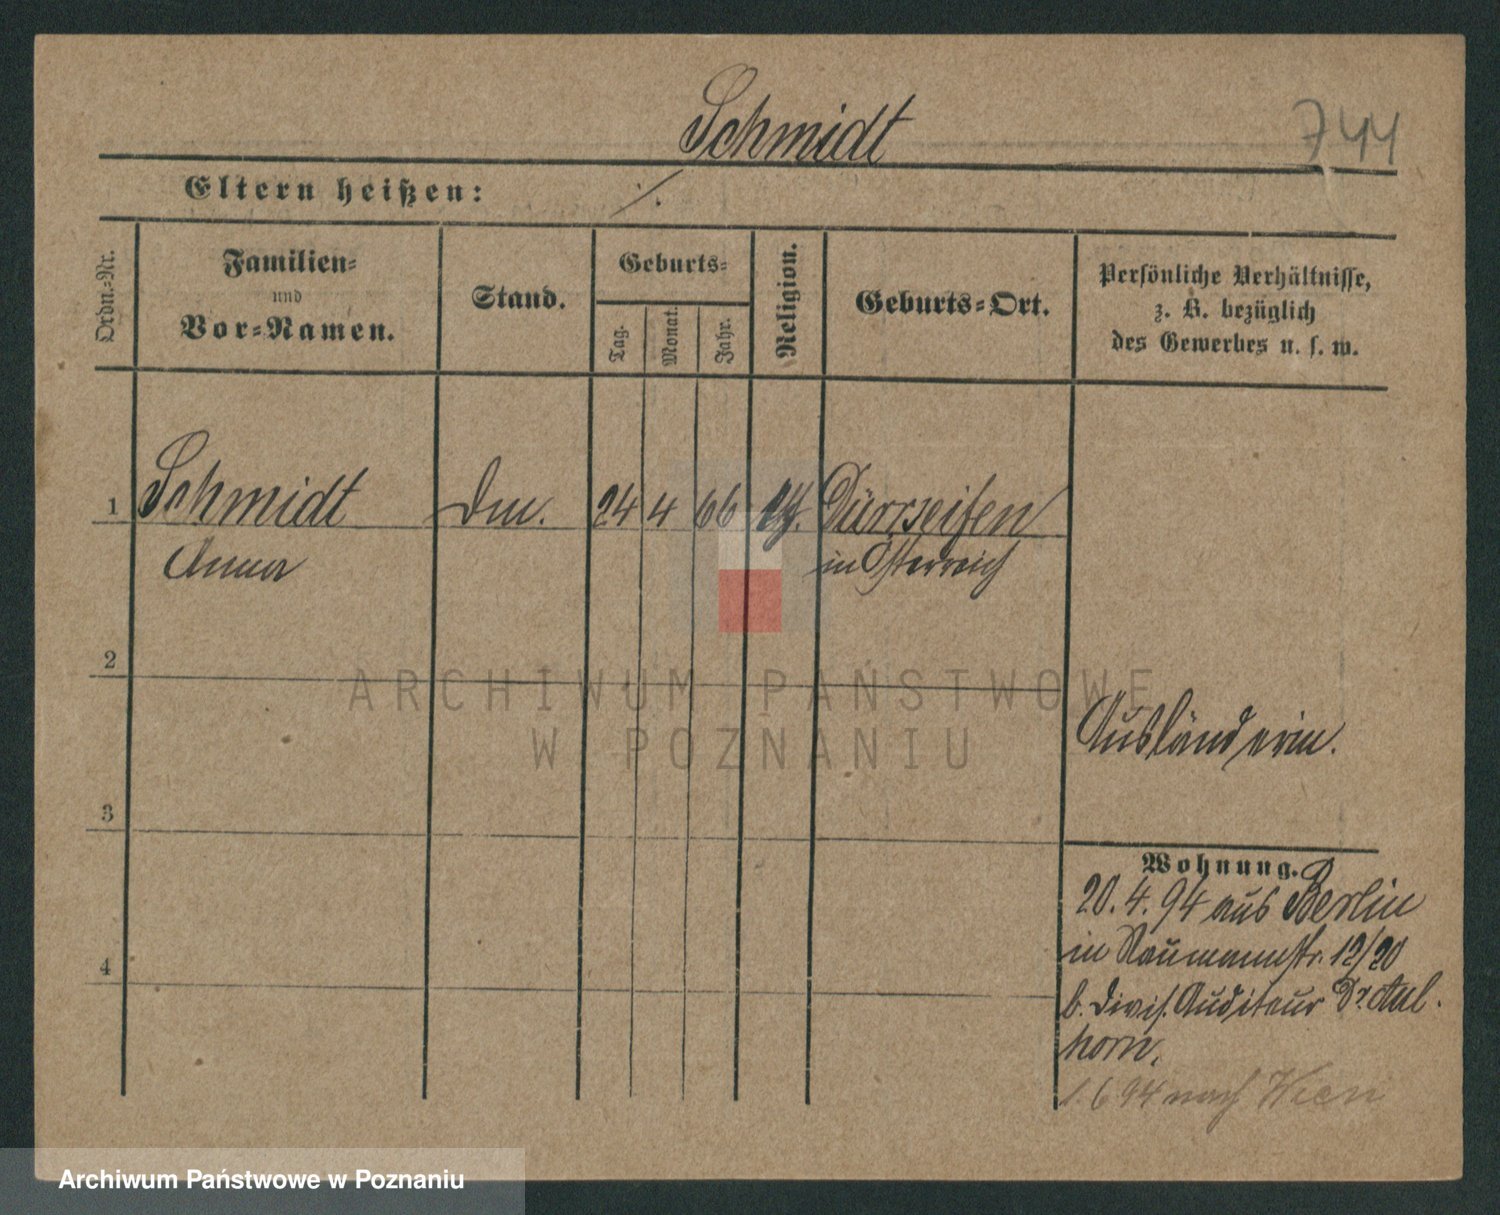 Schmidt
744
Eltern heißen: ./.
Ordn.-Nr.
Familien-
und
Vor-Namen.
Stand.
Geburts-
Tag.
Monat.
Jahr.
Religion.
Geburts-Ort.
Persönliche Verhältnisse,
z. B. bezüglich
des Gewerbes u. s. w.
1 Schmidt 24 4 66 Dürrseifen
Anna in Österreich
2
ARCHIWUM PAŃSTWOWE
W POZNANIU
Ausländerin.
3
Wohnung.
20.4.94 aus Berlin
in Naumannstr. 12/20
4
b. Divis. Auditeur Dr. Aul-
horn.
1.6 94 nach Wien
Archiwum Państwowe w Poznaniu